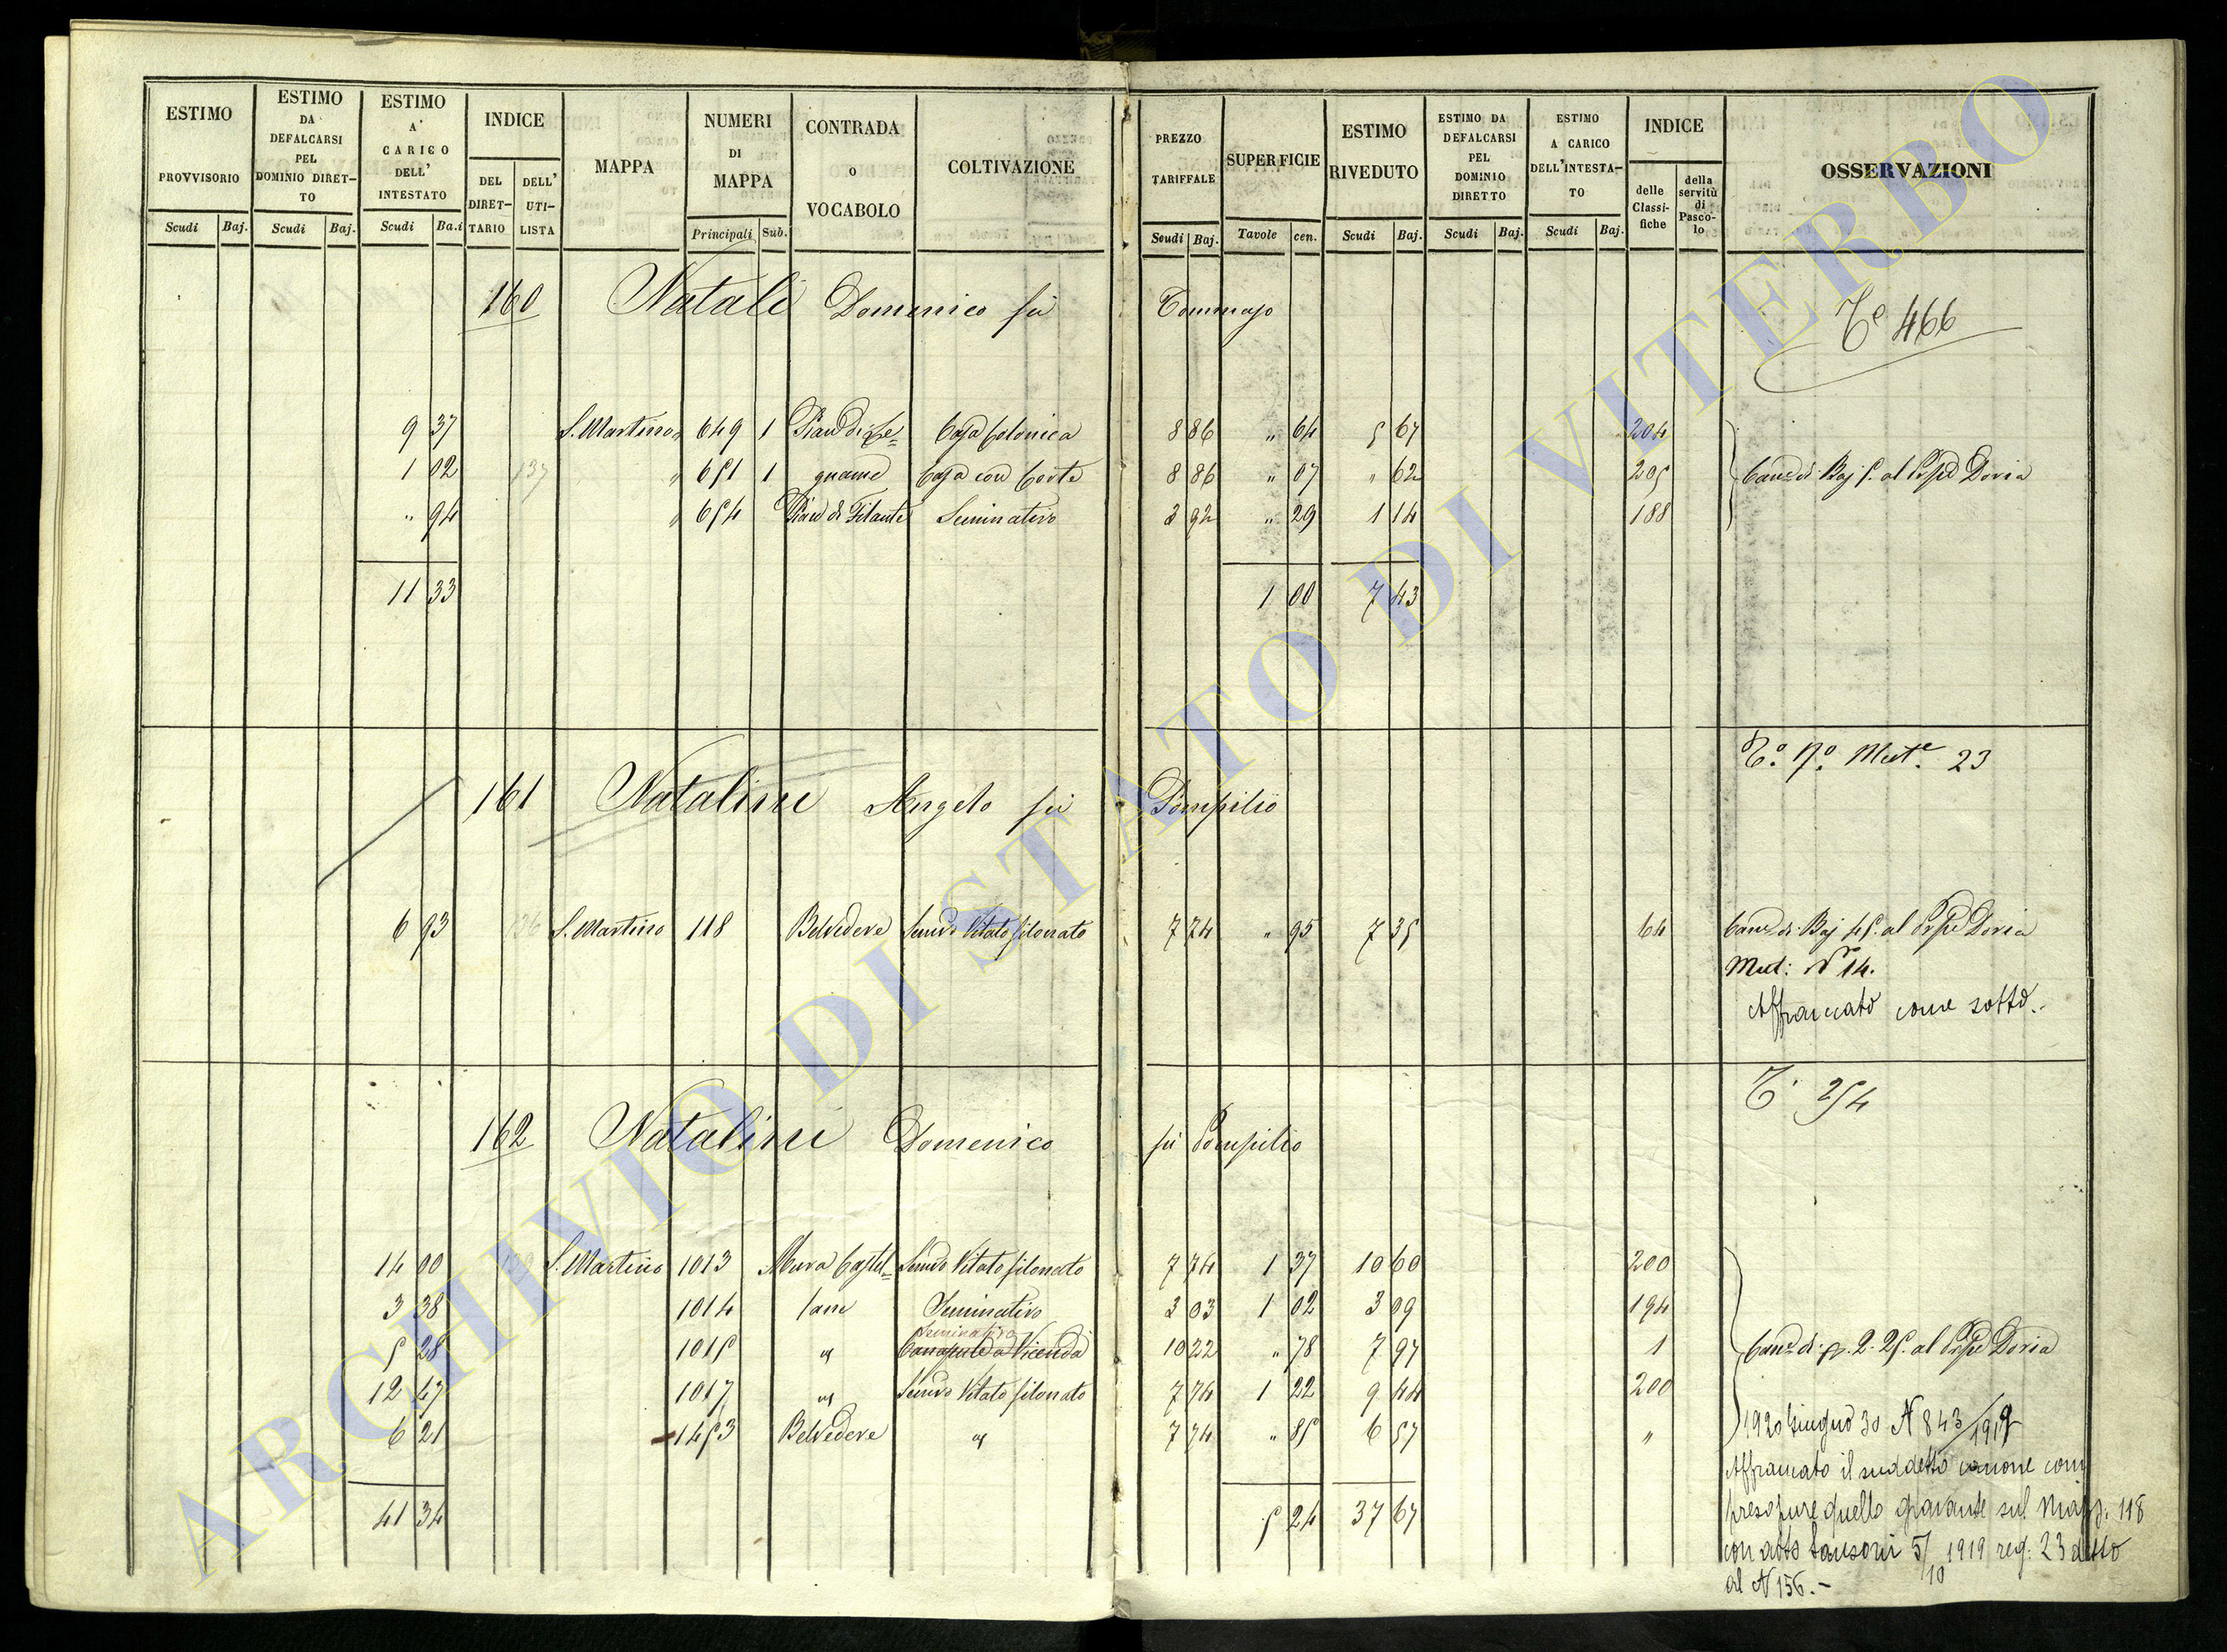 ESTIMO PROVVISORIO Scudi Baj.
ESTIMO DA DEFALCARSI PEL DOMINIO DIRET-TO Scudi Baj.
ESTIMO A' CARICO DELL' INTESTATO Scudi Ba.i
INDICE DEL DIRET-TARIO DELL' UTI-LISTA
MAPPA
NUMERI DI MAPPA Principali Sub.
CONTRADA o VOCABOLO
COLTIVAZIONE
PREZZO TARIFFALE Scudi Baj.
SUPERFICIE Tavole cen.
ESTIMO RIVEDUTO Scudi Baj.
ESTIMO DA DEFALCARSI PEL DOMINIO DIRETTO Scudi Baj.
ESTIMO A CARICO DELL'INTESTA-TO Scudi Baj.
INDICE delle Classi-fiche della servitù di Pasco-lo
OSSERVAZIONI
160 Natali Domenico fu Tommaso
T.e 466
9 37 S. Martino 649 1 Pian di Le= Casa Colonica 8 86 " 64 5 67 204
1 02 137 " 651 1 gname Casa con Corte 8 86 " 07 " 62 205 Can.e di Baj 5. al Prpe Doria
" 94 " 654 Pian di Filante Seminativo 3 92 " 29 1 14 188
11 33 1 00 7 43
T.o N.o Mut.e 23
161 Natalini Angelo fu Pompilio
6 93 136 S. Martino 118 Belvedere Semvo Vitato filonato 7 74 " 95 7 35 64 Can.e di Baj 45. al Prpe Doria
Mut: N 14.
Affrancato come sotto.-
T. 254
162 Natalini Domenico fu Pompilio
14 00 S. Martino 1013 Mura Castel= Semvo Vitato filonato 7 74 1 37 10 60 200
3 38 1014 lane Seminativo 3 03 1 02 3 09 194
Seminativo
5 28 1015 " Canapule a Vicenda 10 22 " 78 7 97 1 Can.e di 2. 25. al Prpe Doria
12 47 1017 " Semvo Vitato filonato 7 74 1 22 9 44 200
6 21 1453 Belvedere " 7 74 " 85 6 57 "
1920 giugno 30 N 843/1919
Affrancato il suddetto canone com
41 34 5 24 37 67
preso pure quello gravante sul Mapp. 118
con atto 5/10 1919 reg: 23 detto
al N 156.-
ARCHIVIO DI STATO DI VITERBO